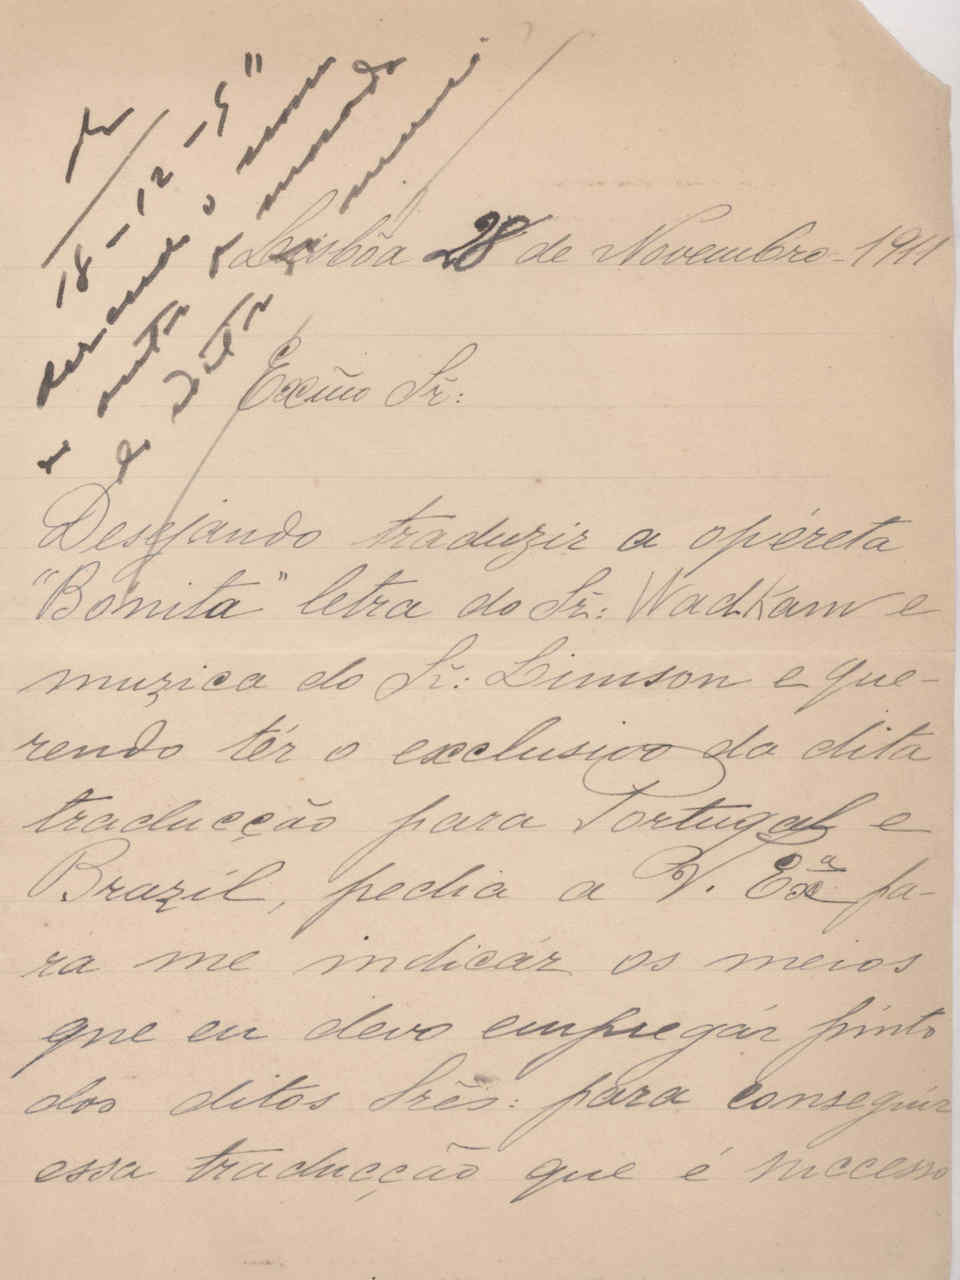 18-12-911
Lisbôa 28 de Novembro-1911
Excmo Sr̃:
Desejando traduzir a opéreta
"Bonita" letra do Sr̃: Wadham e
muzica do Sr̃: Simson e que-
rendo têr o exclusivo da dita
traducção para Portugal e
Brazil, pedia a V. Exª pa-
ra me indicár os meios
que eu devo empregár junto
dos ditos Srẽs: para conseguir
essa traducção que é successo